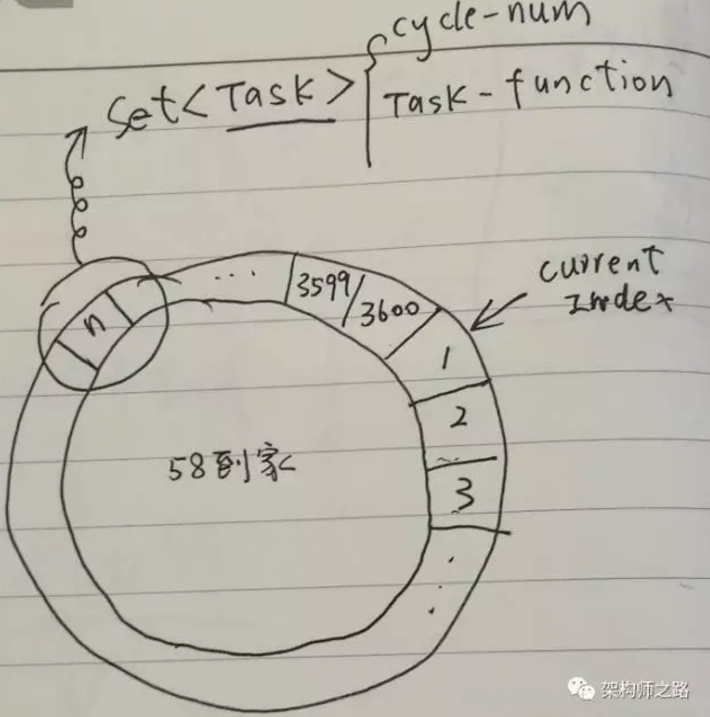 cycle-num
Set<Task>
Task-function
current
Index
...
3599
3600
n
1
2
58到家
3
架构师之路